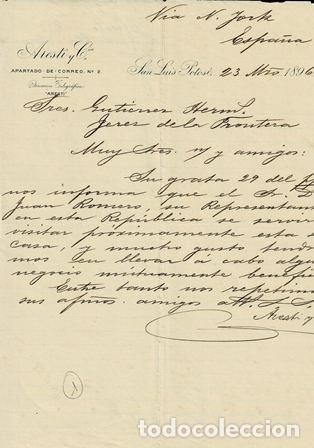 Via N. York
España
Aresti y Cía
APARTADO DE CORREO, Nº 2.
Dirección Telegráfica
"ARESTI"
San Luis Potosí, 23 Mzo 1896
Sres. Gutierrez Hermˢ.
Jerez de la Frontera
Muy Sres. ny y amigos:
Su grata 29 del
nos informa que el Sr. D
Juan Romero, su Representan
en esta República se servir
visitar próximamente esta s
casa, y mucho gusto tendre
mos en llevar á cabo algu
negocio mútuamente benefi
Entre tanto nos repetim
sus afmos. amigos a S. S.
Aresti y
todocoleccion